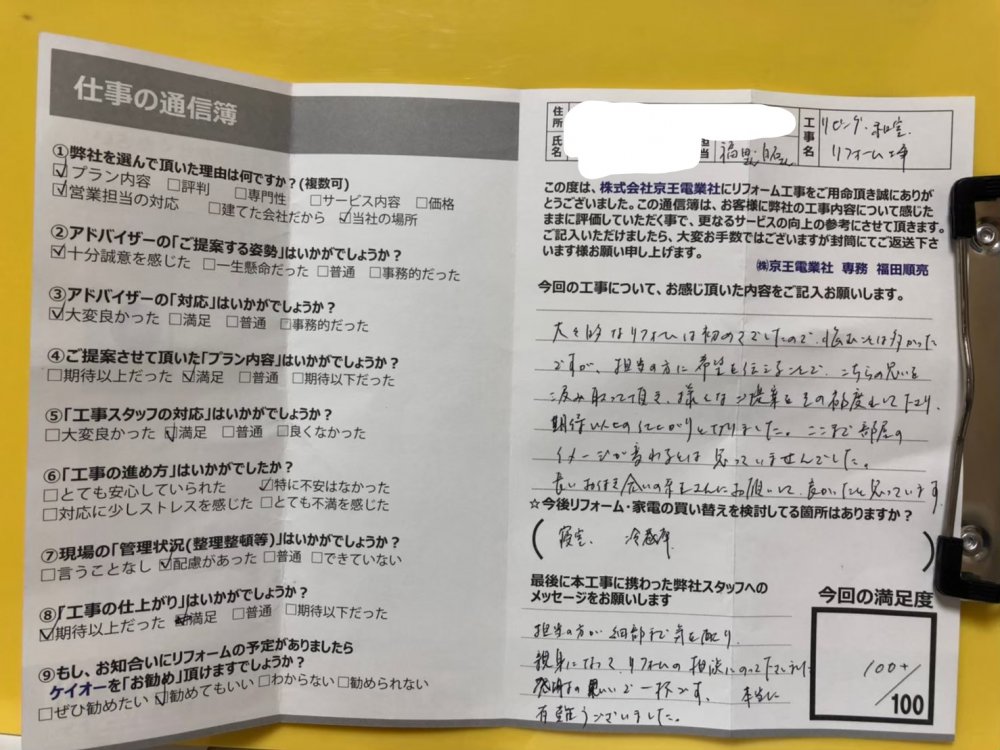 仕事の通信簿
①弊社を選んで頂いた理由は何ですか?(複数可)
☑プラン内容 □評判 □専門性 □サービス内容 □価格
☑営業担当の対応 □建てた会社だから ☑当社の場所
②アドバイザーの「ご提案する姿勢」はいかがでしょうか?
☑十分誠意を感じた □一生懸命だった □普通 □事務的だった
③アドバイザーの「対応」はいかがでしょうか?
☑大変良かった □満足 □普通 □事務的だった
④ご提案させて頂いた「プラン内容」はいかがでしょうか?
□期待以上だった ☑満足 □普通 □期待以下だった
⑤「工事スタッフの対応」はいかがでしょうか?
□大変良かった ☑満足 □普通 □良くなかった
⑥「工事の進め方」はいかがでしたか?
□とても安心していられた ☑特に不安はなかった
□対応に少しストレスを感じた □とても不満を感じた
⑦現場の「管理状況(整理整頓等)」はいかがでしょうか?
□言うことなし ☑配慮があった □普通 □できていない
⑧「工事の仕上がり」はいかがでしょうか?
☑期待以上だった 満足 □普通 □期待以下だった
⑨もし、お知合いにリフォームの予定がありましたら
ケイオーを「お勧め」頂けますでしょうか?
□ぜひ勧めたい ☑勧めてもいい □わからない □勧められない
住所
氏名
担当 福田さん
工事名 リビング・和室
リフォーム工事
この度は、株式会社京王電業社にリフォーム工事をご用命頂き誠にありが
とうございました。この通信簿は、お客様に弊社の工事内容について感じた
ままに評価していただく事で、更なるサービスの向上の参考にさせて頂きます。
ご記入いただけましたら、大変お手数ではございますが封筒にてご返送下さ
います様お願い申し上げます。
㈱京王電業社 専務 福田順亮
今回の工事について、お感じ頂いた内容をご記入お願いします。
大々的なリフォームは初めてでしたので、悩むことは多かった
ですが、担当の方に希望を伝えることで、こちらの思いを
汲み取って頂き、様々なご提案をその都度して下さり、
期待以上の仕上がりとなりました。ここまで部屋の
イメージが変わるとは思っていませんでした。
長いお付き合いの京王さんにお願いして、良かったと思っています。
☆今後リフォーム・家電の買い替えを検討してる箇所はありますか?
(寝室、冷蔵庫)
最後に本工事に携わった弊社スタッフへの
メッセージをお願いします
担当の方が細部まで気を配り、
親身になって、リフォームの相談にのって下さり、
感謝の思いで一杯です。本当に
有難うございました。
今回の満足度
100+/
100